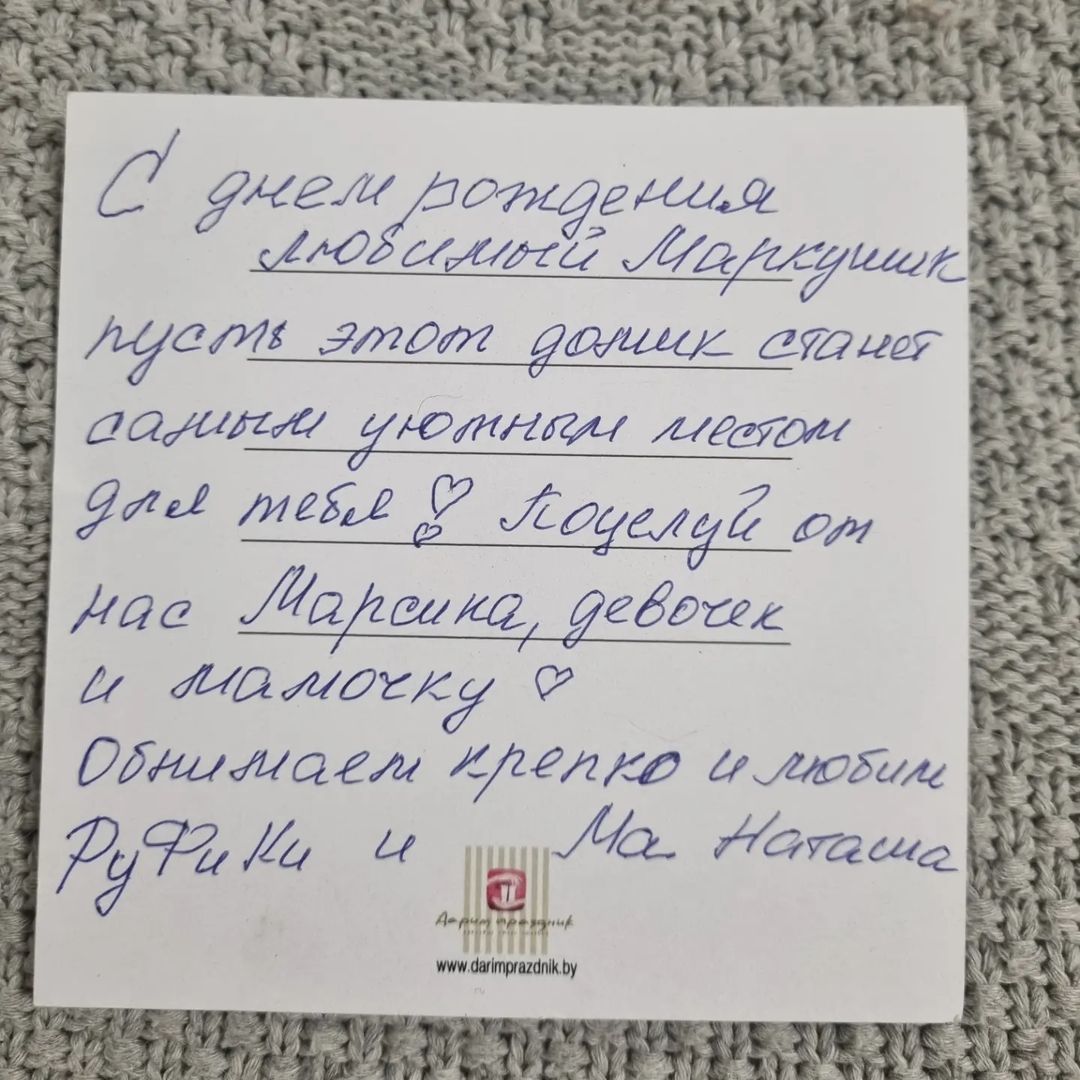 С днем рождения
любимый Маркушик
пусть этот домик станет
самым уютным местом
для тебя ♡ Поцелуй от
нас Марсика, девочек
и мамочку ♡
Обнимаем крепко и любим
РуФиКи и Ма Наташа
Дарим праздник
www.darimprazdnik.by